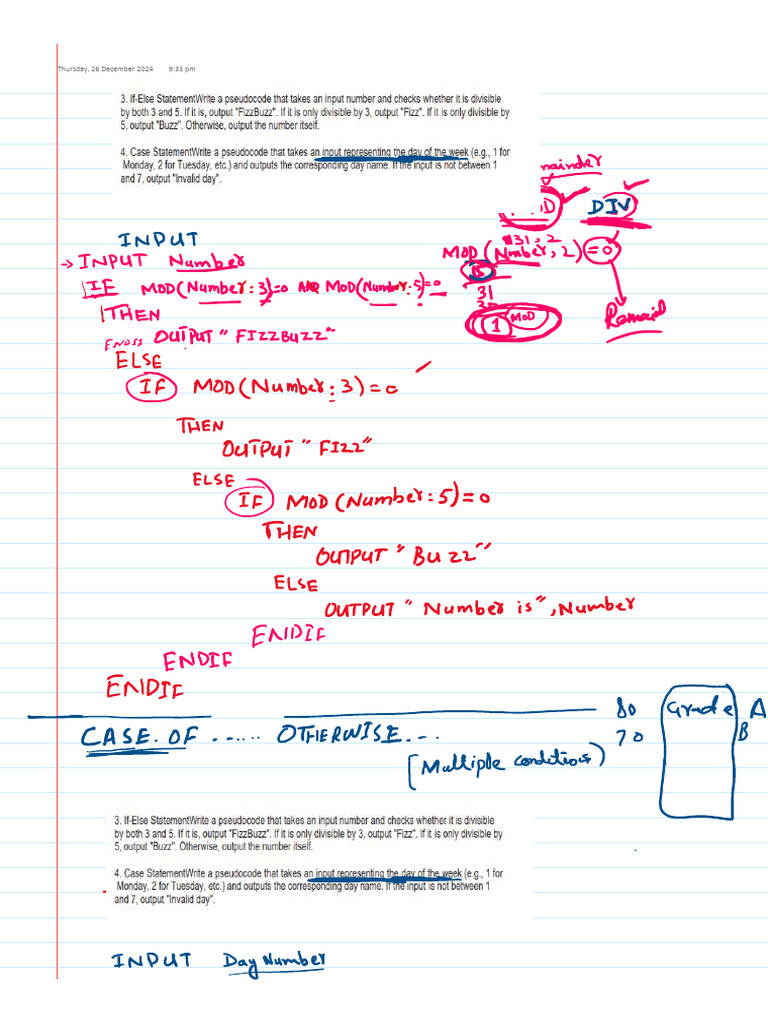 Thursday, 26 December 2024 9:33 pm
3. If-Else StatementWrite a pseudocode that takes an input number and checks whether it is divisible
by both 3 and 5. If it is, output "FizzBuzz". If it is only divisible by 3, output "Fizz". If it is only divisible by
5, output "Buzz". Otherwise, output the number itself.
4. Case StatementWrite a pseudocode that takes an input representing the day of the week (e.g., 1 for
Monday, 2 for Tuesday, etc.) and outputs the corresponding day name. If the input is not between 1
and 7, output "Invalid day".
mainder
DIV
INPUT
31, 2
MOD (Nmber, 2) = 0
INPUT Number
IF MOD(Number: 3)=0 AND MOD(Number: 5)=0
31
THEN
1 MOD
Remaid
OUTPUT "FIZZBUZZ"
ELSE
IF MOD(Number: 3)=0
THEN
OUTPUT "FIZZ"
ELSE
IF MOD(Number: 5)=0
THEN
OUTPUT "BUZZ"
ELSE
OUTPUT "Number is", Number
ENDIF
ENDIF
ENDIF
80 Grade A
CASE OF ...... OTHERWISE...
70 B
[Multiple conditions)
3. If-Else StatementWrite a pseudocode that takes an input number and checks whether it is divisible
by both 3 and 5. If it is, output "FizzBuzz". If it is only divisible by 3, output "Fizz". If it is only divisible by
5, output "Buzz". Otherwise, output the number itself.
4. Case StatementWrite a pseudocode that takes an input representing the day of the week (e.g., 1 for
Monday, 2 for Tuesday, etc.) and outputs the corresponding day name. If the input is not between 1
and 7, output "Invalid day".
INPUT Day Number